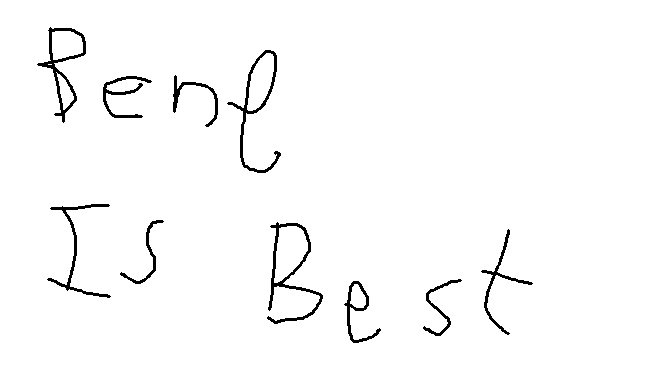 Benl
Is Best